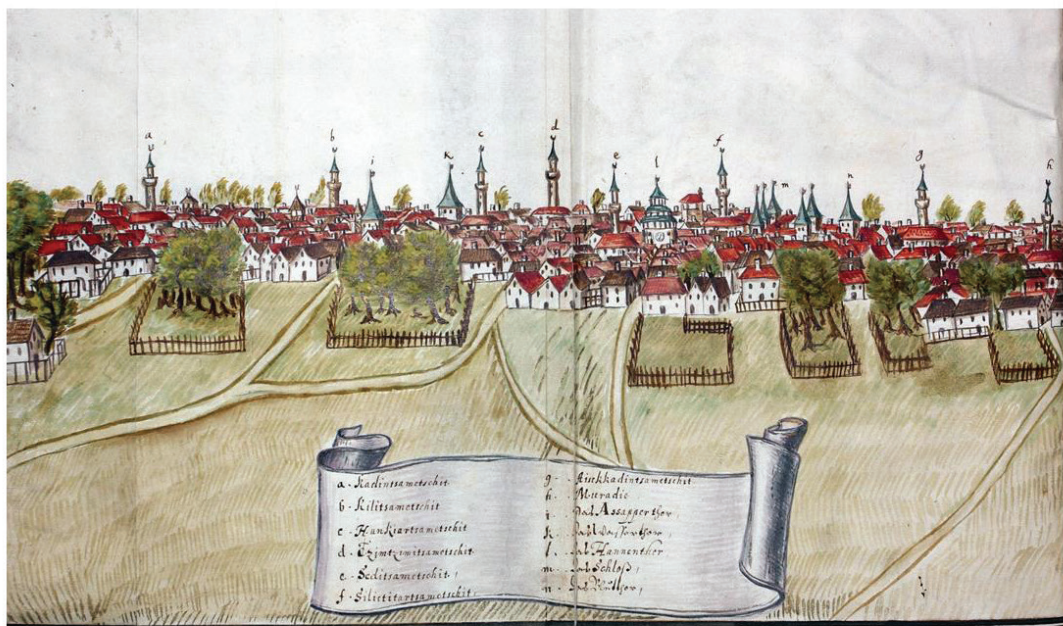 a
b
i
k
c
d
e
l
f
m
n
g
h
a · Kadintsametschit
b · Kilitsametschit
c · Hunkiartsametschit
d · Tzimtzimitsametschit
e · Seditsametschit,
f · Silictitartsametschit,
g · Kiukkadintsametschit
h · Muradie
i · das Assapperthor,
k · das
l · das Hannenthor
m · das Schloß,
n · das